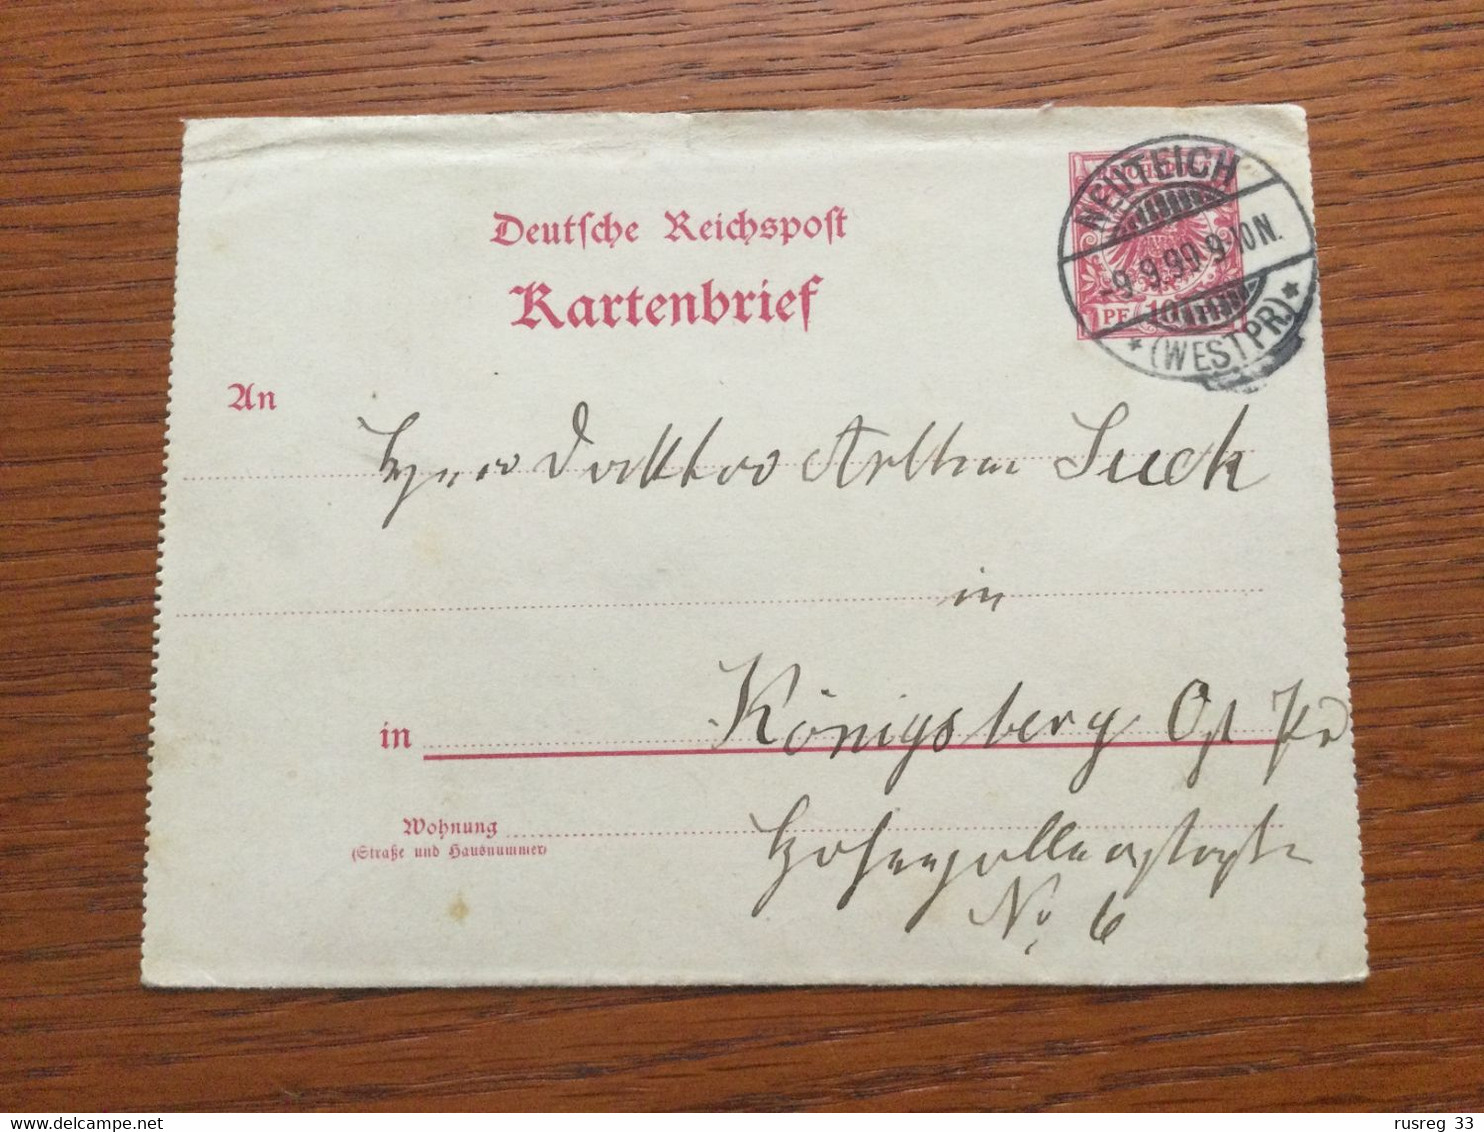 Deutsche Reichspost
Kartenbrief
NEUTEICH
-9.9.99. 9-10N.
* (WESTPR) *
PF 10
An
Herrn Doktor Arthur Suck
in
in Königsberg Ost Pr
Wohnung Hohenzollernstraße
(Straße und Hausnummer)
No 6
rusreg 33